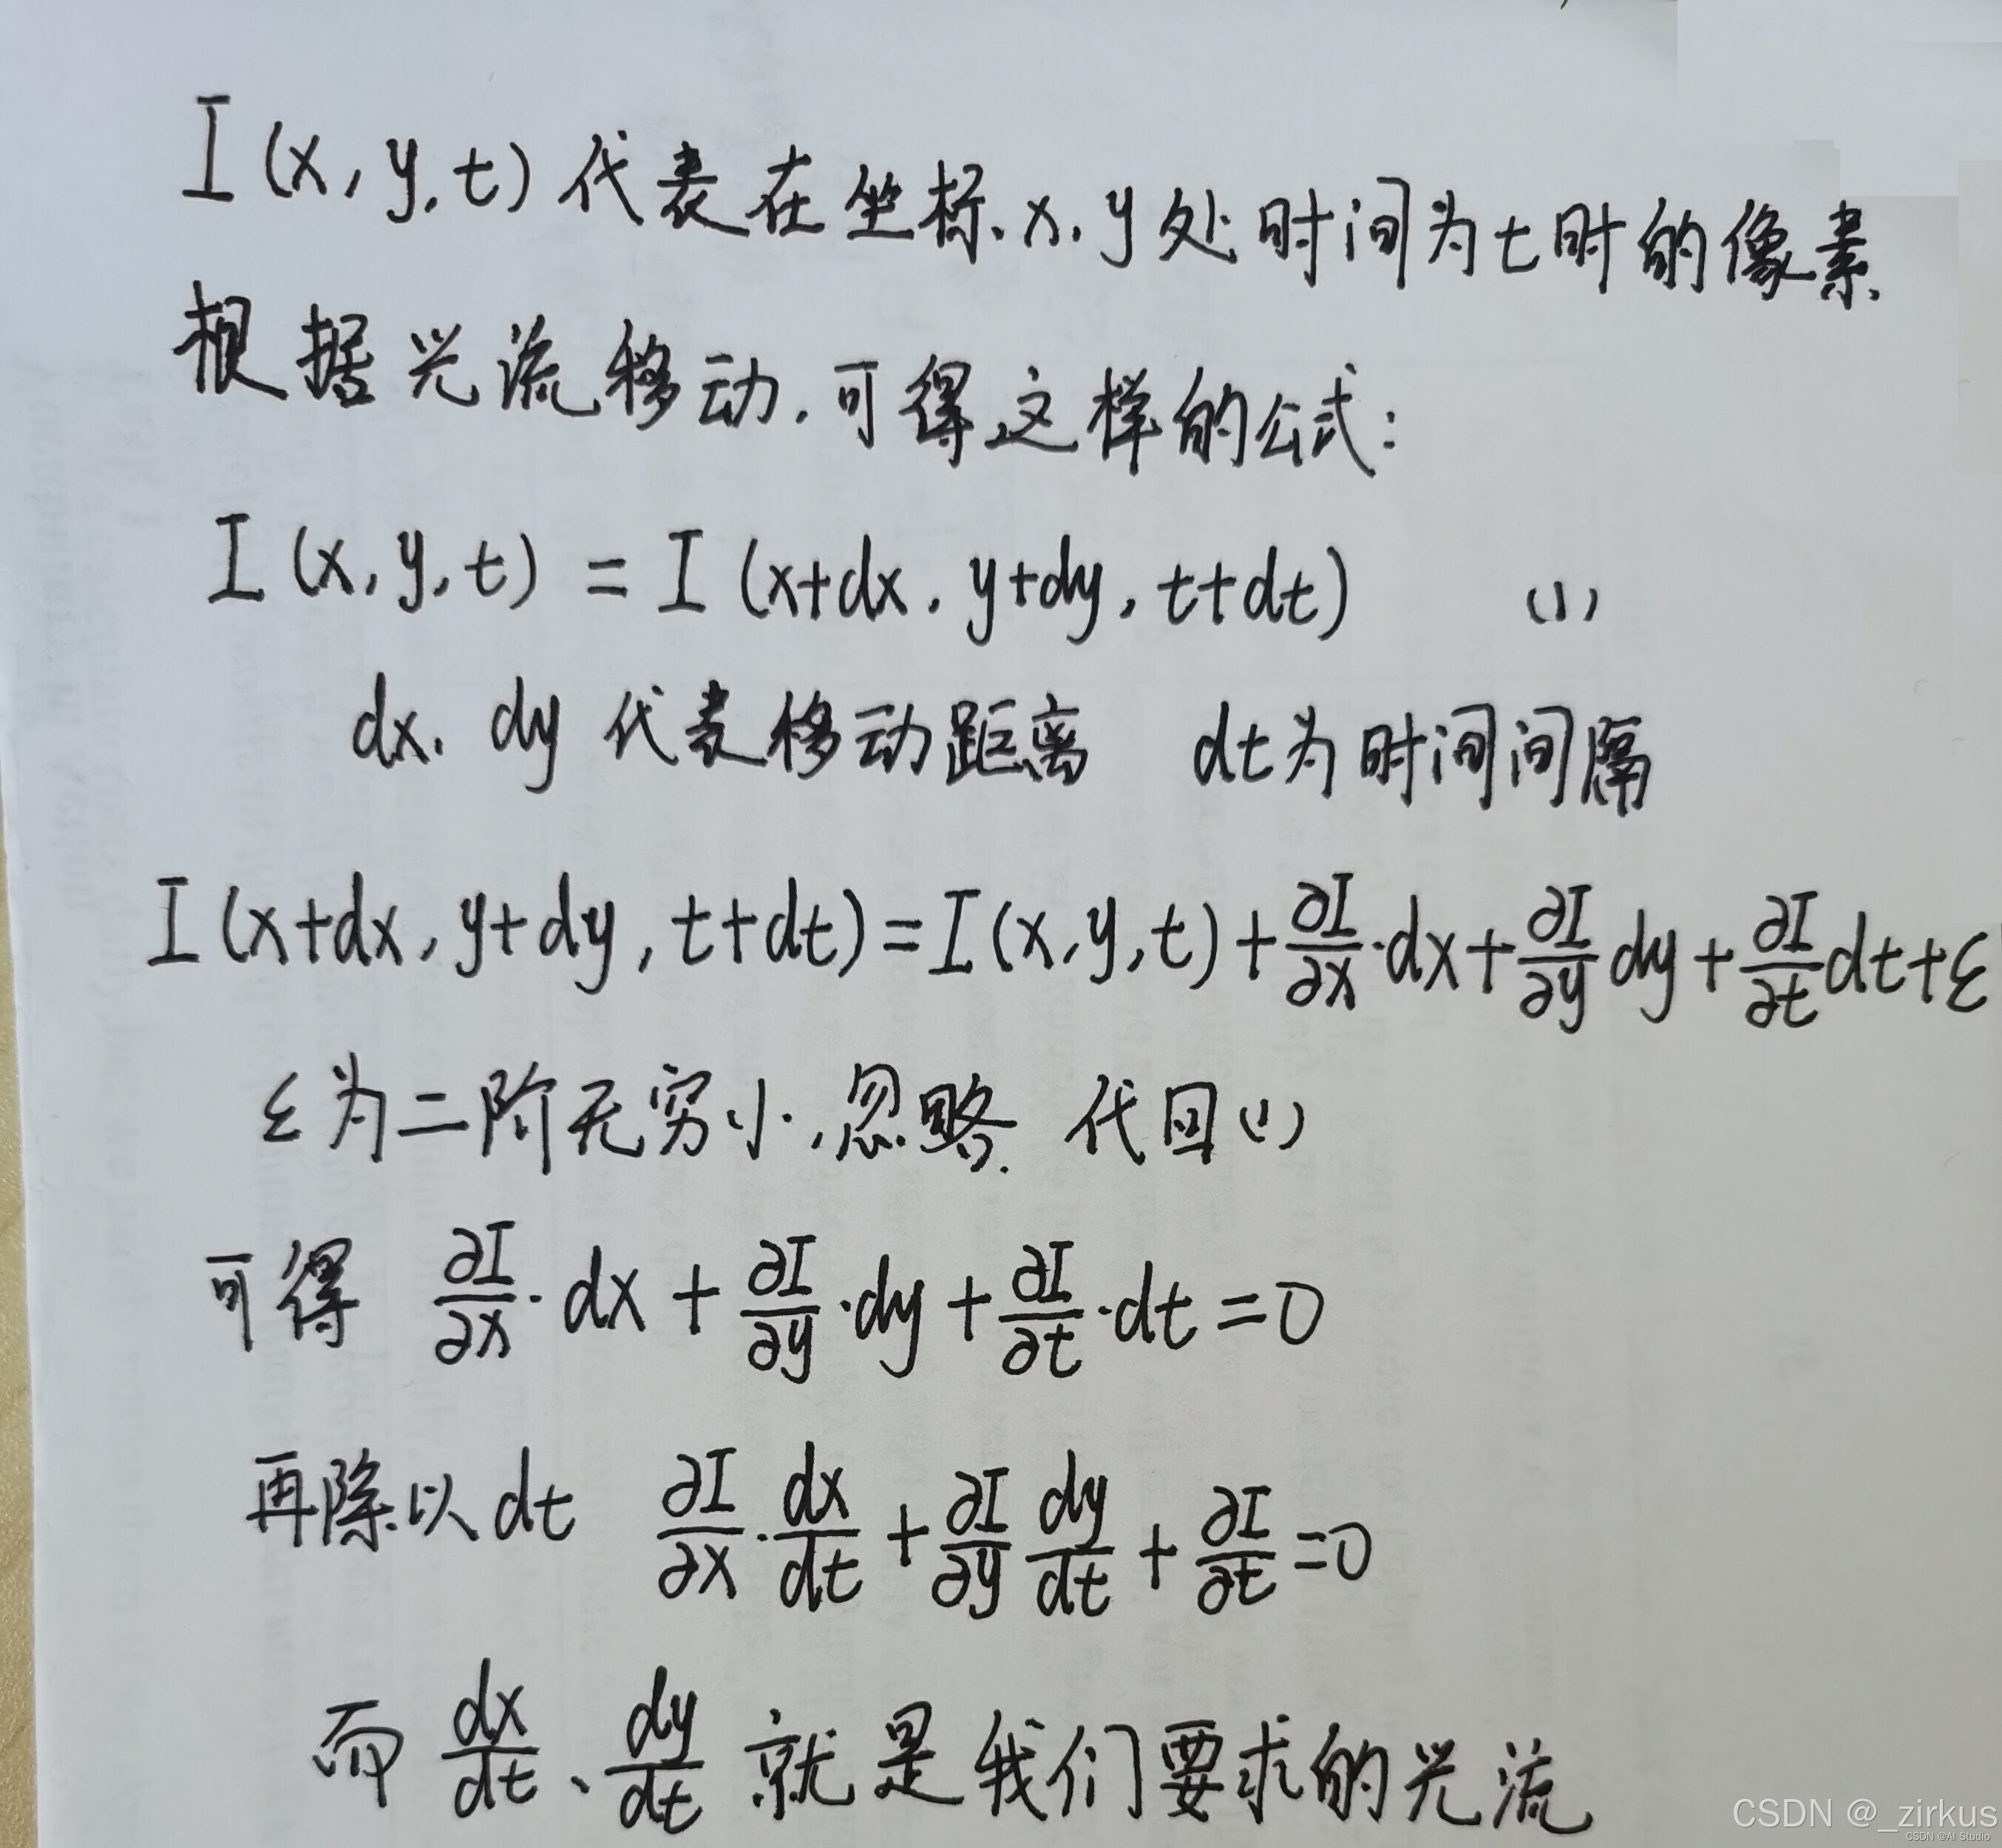 I(x,y,t)代表在坐标x,y处时间为t时的像素
根据光流移动,可得这样的公式:
I(x,y,t) = I(x+dx, y+dy, t+dt) (1)
dx, dy 代表移动距离 dt为时间间隔
I(x+dx, y+dy, t+dt) = I(x,y,t) + ∂I/∂x·dx + ∂I/∂y dy + ∂I/∂t dt + ε
ε为二阶无穷小,忽略. 代回(1)
可得 ∂I/∂x·dx + ∂I/∂y·dy + ∂I/∂t·dt = 0
再除以dt ∂I/∂x·dx/dt + ∂I/∂y dy/dt + ∂I/∂t = 0
而 dx/dt、dy/dt 就是我们要求的光流
CSDN @_zirkus
CSDN @AI Studio